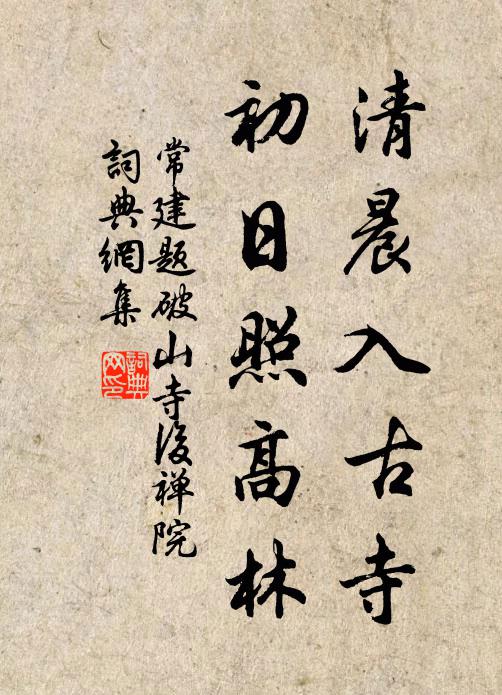 清晨入古寺
初日照高林
常建題破山寺後禅院
詞典網集
詞典網印